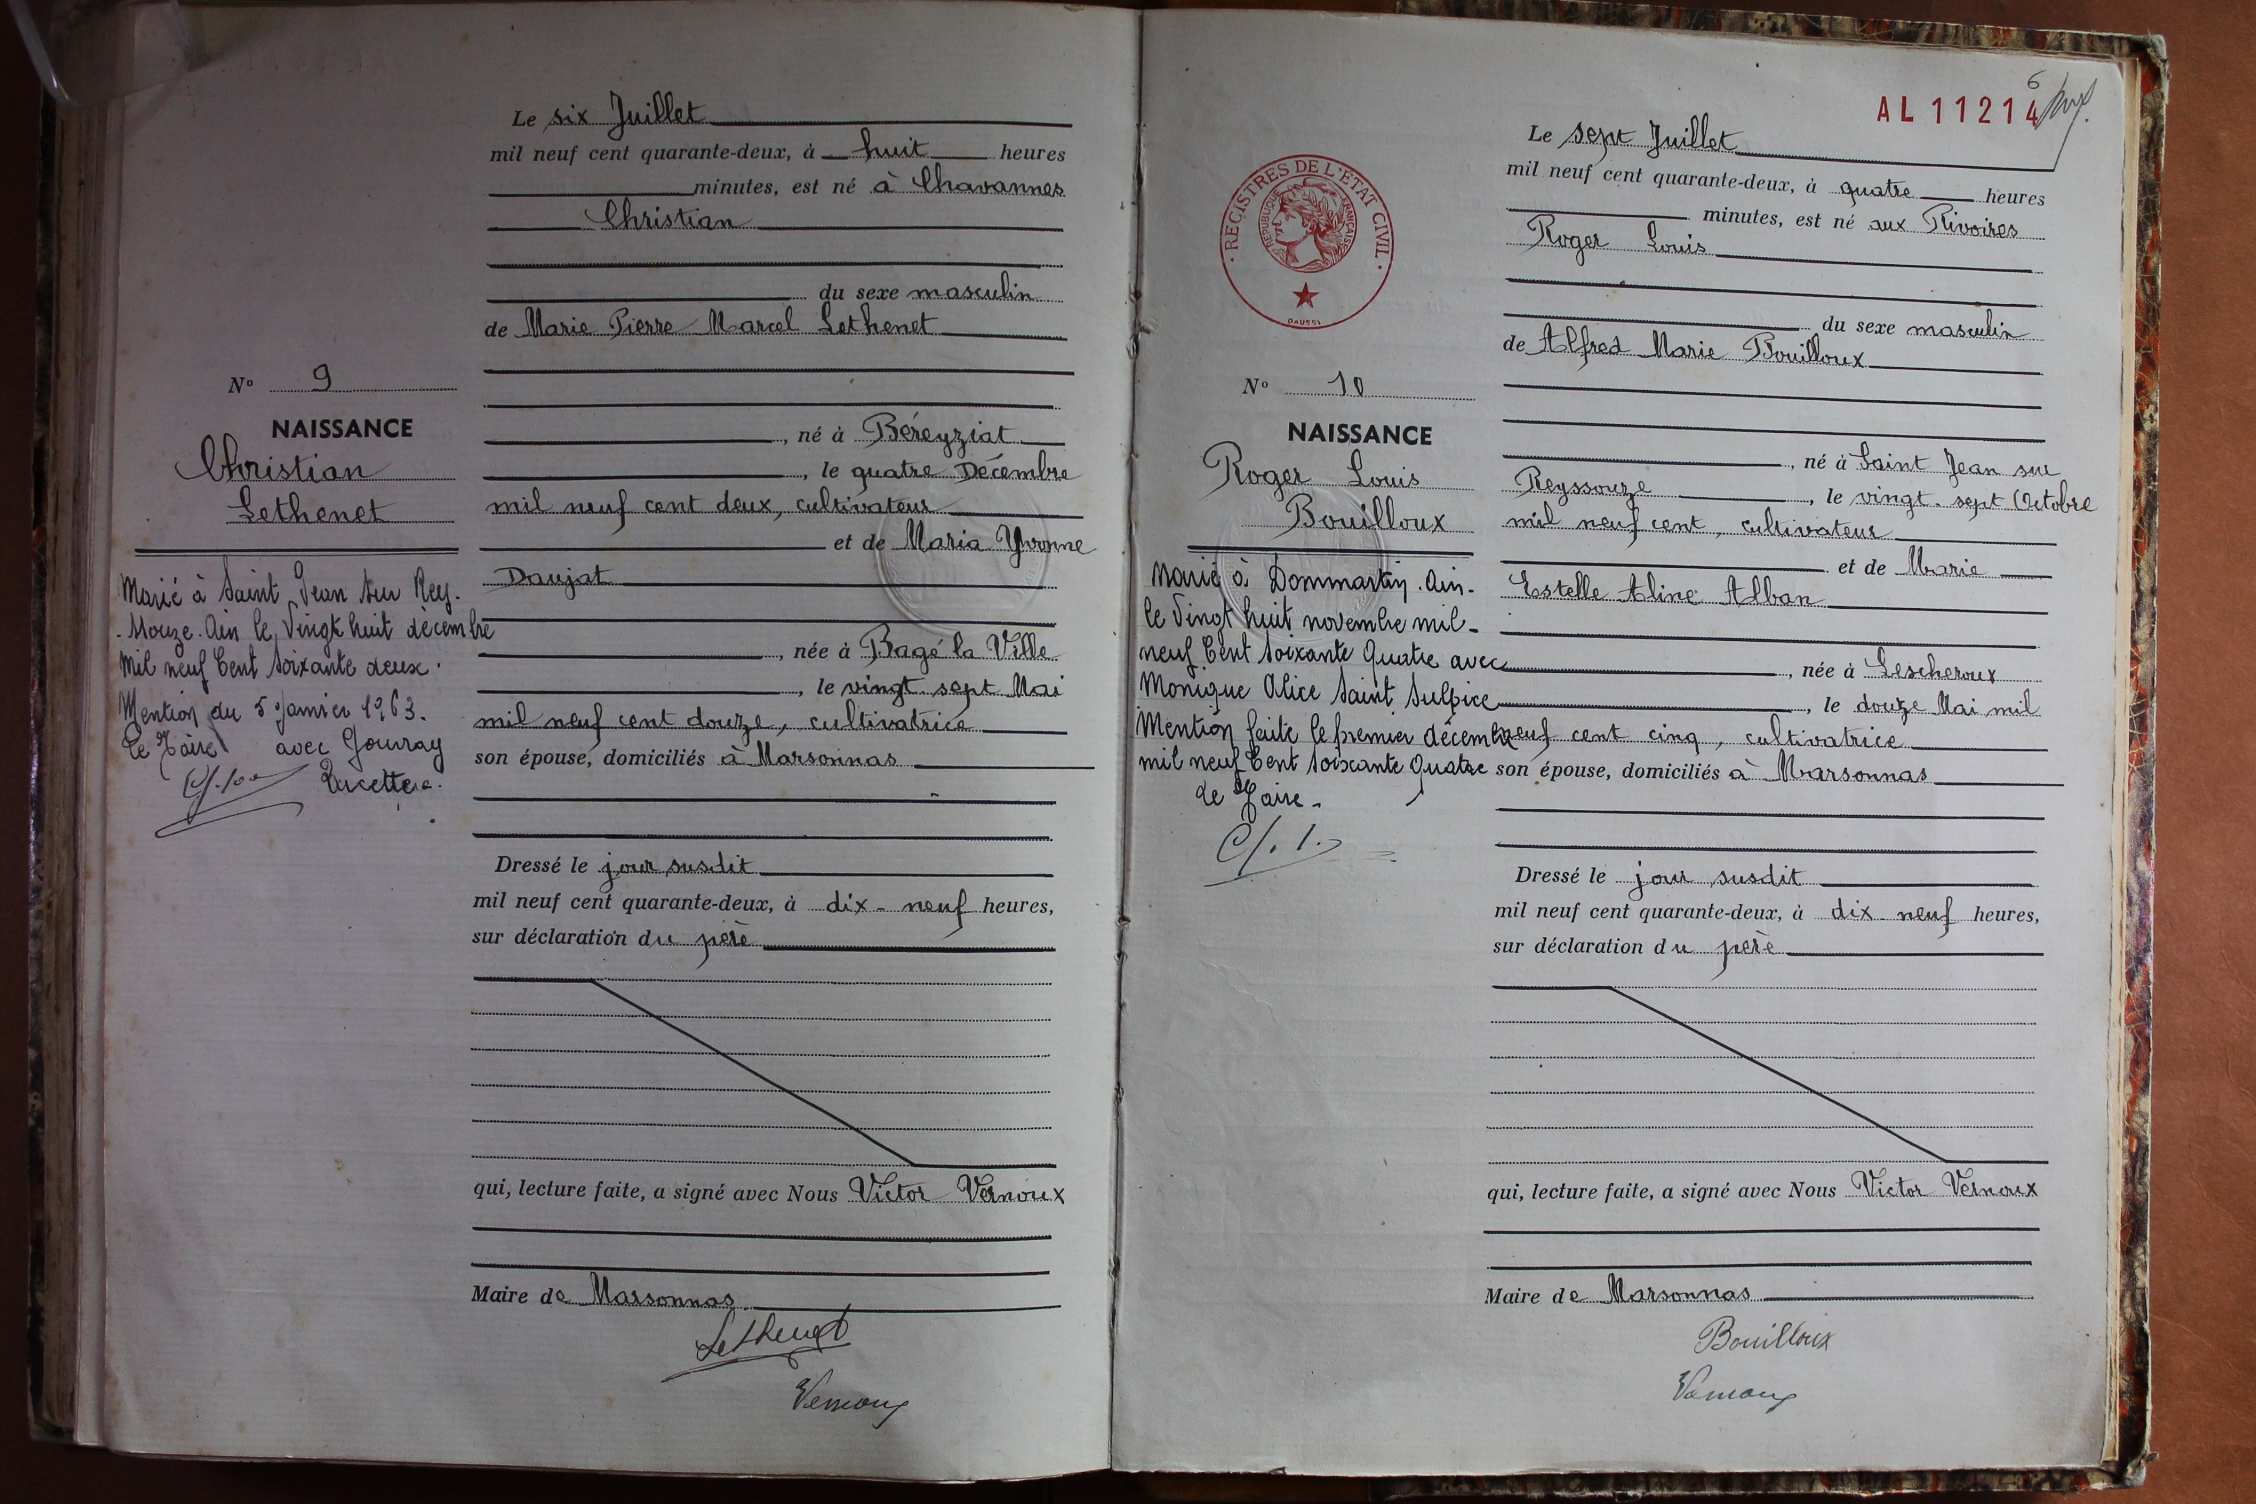 Le six Juillet
mil neuf cent quarante-deux, à huit heures
minutes, est né à Chavannes
Christian
du sexe masculin
de Marie Pierre Marcel Lethenet
N° 9
NAISSANCE
Christian
Lethenet
, né à Béreyziat
, le quatre Décembre
mil neuf cent deux, cultivateur
et de Maria Yvonne
Daujat
, née à Bagé la Ville
, le vingt sept Mai
mil neuf cent douze, cultivatrice
son épouse, domiciliés à Marsonnas
Marié à Saint Jean sur Rey.
ssouze. Ain le Vingt huit décembre
mil neuf Cent soixante deux.
Mention du 5 janvier 1963.
Le Maire avec Gouray
Lucette
Dressé le jour susdit
mil neuf cent quarante-deux, à dix-neuf heures,
sur déclaration du père
qui, lecture faite, a signé avec Nous Victor Vernoux
Maire de Marsonnas
Lethenet
Vernoux
6
AL 11214
Le sept Juillet
mil neuf cent quarante-deux, à quatre heures
minutes, est né aux Rivoires
Roger Louis
du sexe masculin
de Alfred Marie Bouilloux
REGISTRES DE L'ÉTAT CIVIL
REPUBLIQUE FRANÇAISE
DAUSSI
N° 10
NAISSANCE
Roger Louis
Bouilloux
, né à Saint Jean sur
Reyssouze , le vingt-sept Octobre
mil neuf cent, cultivateur
et de Marie
Estelle Aline Alban
, née à Lescheroux
, le douze Mai mil
neuf cent cinq, cultivatrice
son épouse, domiciliés à Marsonnas
Marié à Dommartin. Ain.
le Vingt huit novembre mil
neuf Cent soixante Quatre avec
Monique Alice Saint Sulpice
Mention faite le premier décembre
mil neuf Cent soixante Quatre
Le Maire
Dressé le jour susdit
mil neuf cent quarante-deux, à dix-neuf heures,
sur déclaration du père
qui, lecture faite, a signé avec Nous Victor Vernoux
Maire de Marsonnas
Bouilloux
Vernoux